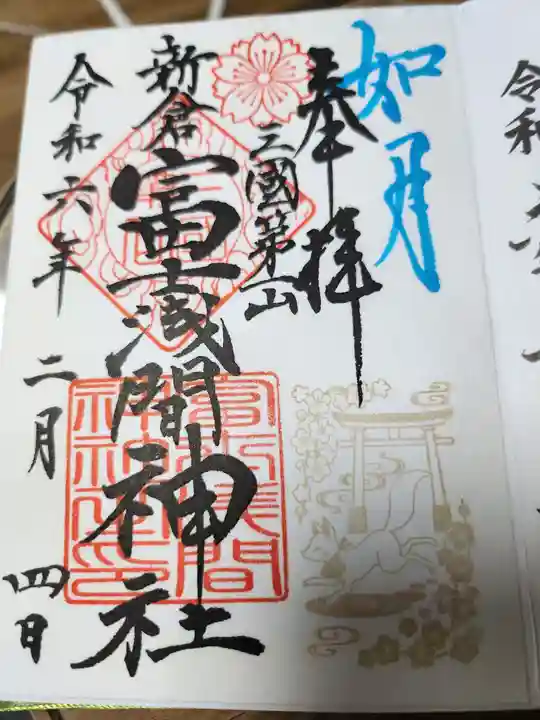 如月
奉拝
三國第一山
新倉
富士浅間神社
令和六年二月四日
令和